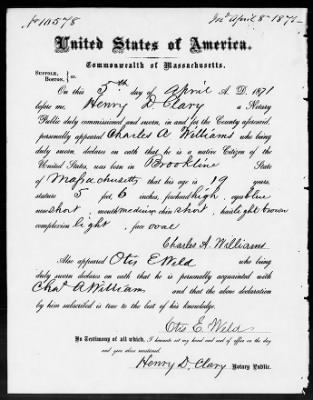 No 10578
Iss'd April 8-1871-
United States of America.
Commonwealth of Massachusetts.
SUFFOLK,
BOSTON, } ss.
On this 5th day of April A. D. 1871
before me, Henry D Clary a Notary
Public duly commissioned and sworn, in and for the County aforesaid,
personally appeared Charles A Williams who being
duly sworn declares on oath that he is a native Citizen of the
United States, was born in Brookline State
of Massachusetts that his age is 19 years,
stature 5 feet 6 inches, forehead high, eyes blue
nose short, mouth medium chin short, hair light brown
complexion light, face oval
Charles A. Williams
Also appeared Otis E Wild who being
duly sworn declares on oath that he is personally acquainted with
Chas A Williams and that the above declaration
by him subscribed is true to the best of his knowledge.
Otis E. Wild
In Testimony of all which, I hereunto set my hand and seal of office on the day
and year above mentioned.
Henry D. Clary Notary Public.